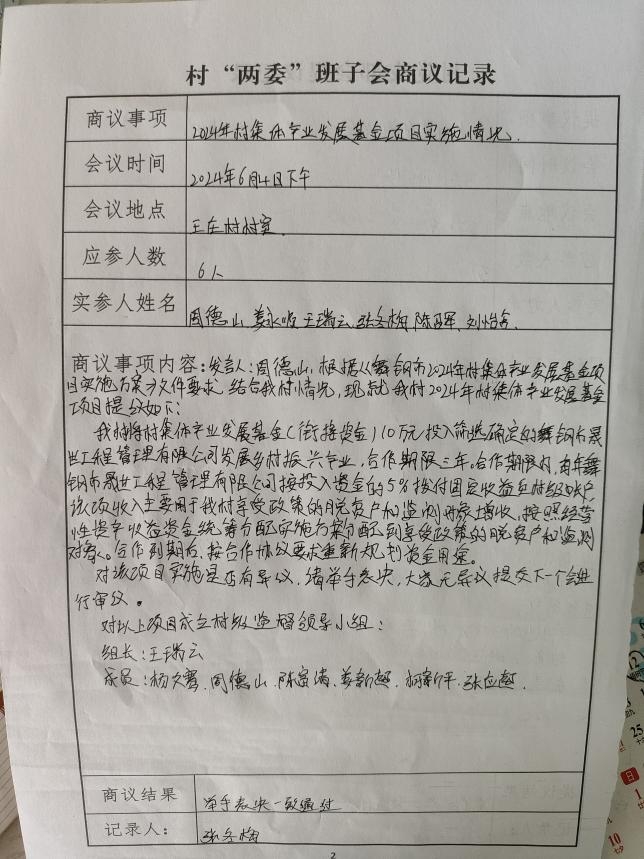 村“两委”班子会商议记录
商议事项 2024年村集体产业发展基金项目实施情况.
会议时间 2024年6月4日下午
会议地点 王庄村村室.
应参人数 6人
实参人姓名 周德山、姜永 王瑞云、张冬梅、陈 军、刘怡
商议事项内容:发言人:周德山,根据《舞钢市2024年村集体产业发展基金项
目实施方案》文件要求,结合我村情况,现就我村2024年村集体产业发展基金
项目提议如下:
我村将村集体产业发展基金(衔接资金)10万元投入筛选确定的舞钢市晟
世工程管理有限公司发展乡村振兴产业,合作期限三年。合作期限内,每年舞
钢市晟世工程管理有限公司按投入资金的5%拨付固定收益至村级账户,
该项收入主要用于我村享受政策的脱贫户和监测户稳定增收,按照经营
性资产收益资金统筹分配实施方案分配到享受政策的脱贫户和监测
对象。合作到期后,按合作协议要求重新规划资金用途。
对该项目实施是否有异议,请举手表决,大家无异议提交下一个会进
行审议。
对以上项目成立村级监督领导小组:
组长:王瑞云
成员:杨文 、周德山、陈富 、姜新 、 新平、张应
商议结果 举手表决一致通过
记录人: 张冬梅
2